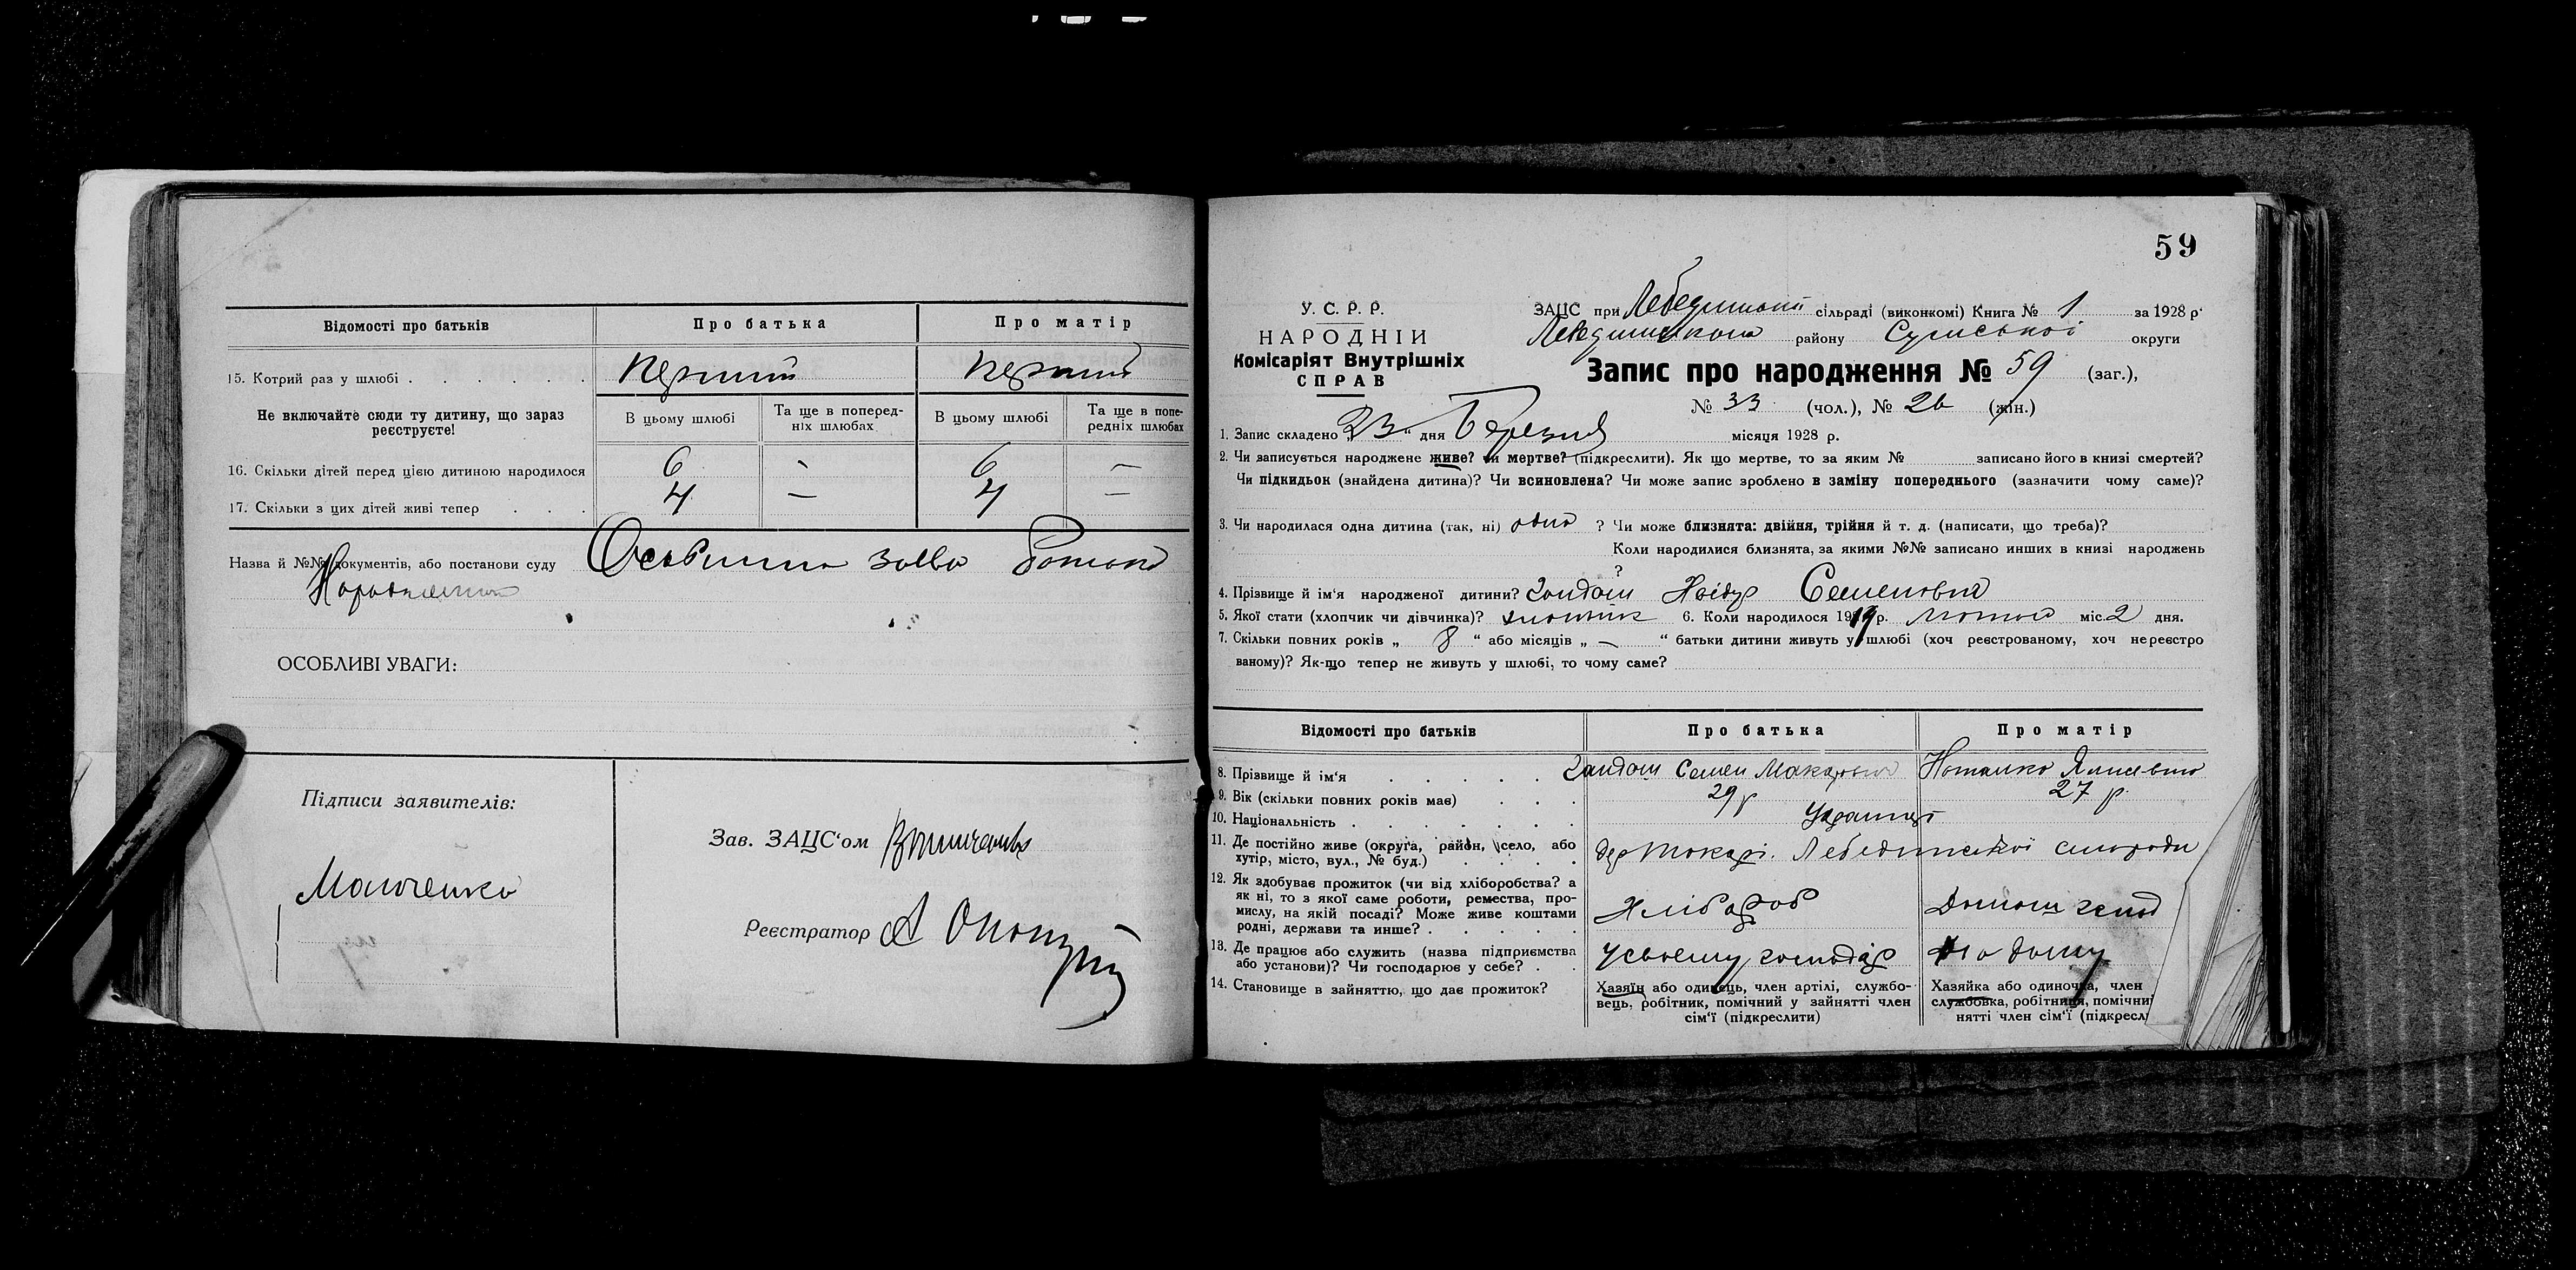 Відомості про батьків
Про батька
Про матір
15. Котрий раз у шлюбі . . . . . . .
перший
перший
Не включайте сюди ту дитину, що зараз реєструєте!
В цьому шлюбі
Та ще в поперед-
ніх шлюбах
В цьому шлюбі
Та ще в попе-
редніх шлюбах
16. Скільки дітей перед цією дитиною народилося
6 — 6 —
17. Скільки з цих дітей живі тепер . . .
4 — 4 —
Назва й №№ документів, або постанови суду
ОСОБЛИВІ УВАГИ:
Підписи заявителів:
Зав. ЗАЦС'ом
Реєстратор
59
У. С. Р. Р.
НАРОДНІЙ
Комісаріят Внутрішніх
СПРАВ
ЗАЦС при сільраді (виконкомі) Книга № 1 за 1928 р.
району Сумської округи
Запис про народження № 59 (заг.),
№ 33 (чол.), № 26 (жін.)
1. Запис складено „23“ дня Березня місяця 1928 р.
2. Чи записується народжене живе? чи мертве? (підкреслити). Як що мертве, то за яким № записано його в книзі смертей?
Чи підкидьок (знайдена дитина)? Чи всиновлена? Чи може запис зроблено в заміну попереднього (зазначити чому саме)?
3. Чи народилася одна дитина (так, ні) одно ? Чи може близнята: двійня, трійня й т. д. (написати, що треба)?
Коли народилися близнята, за якими №№ записано инших в книзі народжень
?
4. Прізвище й ім'я народженої дитини? Семенович
5. Якої стати (хлопчик чи дівчинка)? хлопчик 6. Коли народилося 19 р. лютого міс. 2 дня.
7. Скільки повних років „ 8 “ або місяців „ — “ батьки дитини живуть у шлюбі (хоч реєстрованому, хоч нереєстро
ваному)? Як-що тепер не живуть у шлюбі, то чому саме?
Відомості про батьків
Про батька
Про матір
8. Прізвище й ім'я . . . . .
Семен Макарович
9. Вік (скільки повних років має) . . .
29 р
27 р.
10. Національність . . . . . . .
Українці
11. Де постійно живе (округа, район, село, або
хутір, місто, вул., № буд.) . . . .
Токарі. Лебединської
12. Як здобуває прожиток (чи від хліборобства? а
як ні, то з якої саме роботи, ремества, про-
мислу, на якій посаді? Може живе коштами
родні, держави та инше? . . . . .
Хлібороб
Домаш господ
13. Де працює або служить (назва підприємства
або установи)? Чи господарює у себе? . .
У своєму господар
14. Становище в зайняттю, що дає прожиток?
Хазяїн або одинець, член артілі, службо-
вець, робітник, помічний у зайнятті член
сім'ї (підкреслити)
Хазяйка або одиночка, член
службовка, робітниця, помічни
нятті член сім'ї (підкресл